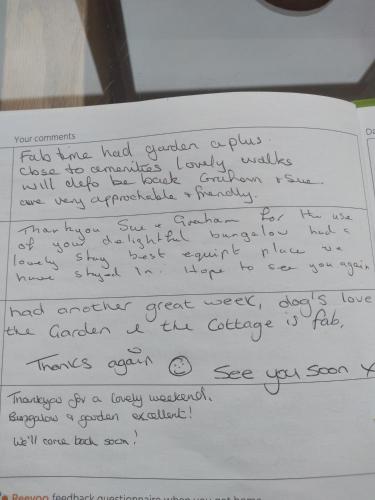 Your comments
Fab time had garden a plus.
Close to amenities lovely walks
will defo be back Graham + Sue.
are very approchable + friendly.
Thankyou Sue + Graham for the use
of your delightful bungalow had a
lovely stay best equipt place we
have stayed In. Hope to see you again
had another great week, dog's love
the Garden & the Cottage is fab,
Thanks again ☺ See you soon x
Thankyou for a lovely weekend.
Bungalow & garden excellent!
We'll come back soon!
feedback questionnaire when you get home